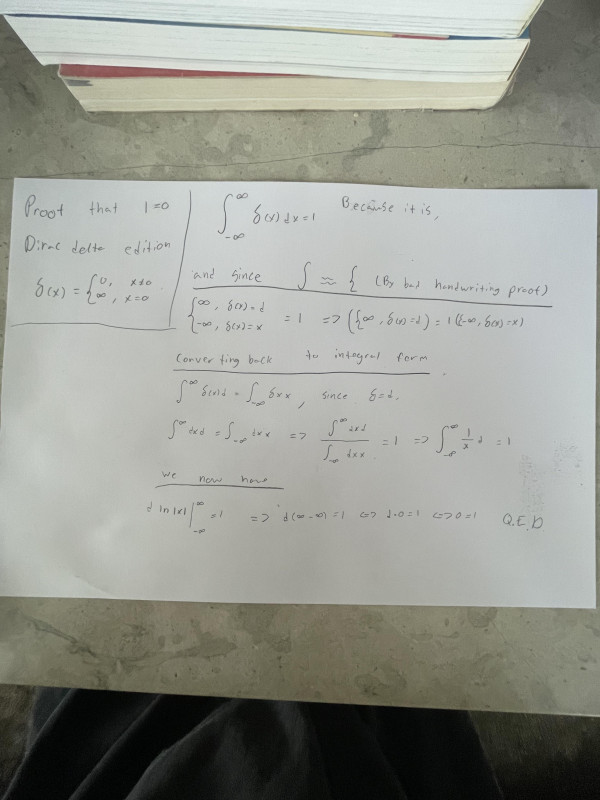 Proof that 1=0
Dirac delta edition
δ(x) = { 0, x≠0
∞, x=0
∫_{-∞}^{∞} δ(x) dx = 1 Because it is,
and since ∫ ≈ { (By bad handwriting proof)
{ ∞, δ(x)=d
-∞, δ(x)=x = 1 => ({∞, δ(x)=d) = 1({-∞, δ(x)=x)
Converting back to integral form.
∫^∞ δ(x)d = ∫_{-∞} δxx, since δ=d.
∫^∞ dxd = ∫_{-∞} dxx => ∫^∞ dxd / ∫_{-∞} dxx = 1 => ∫_{-∞}^{∞} 1/x d = 1
we now have
d ln|x| |_{-∞}^{∞} = 1 => d(∞-∞)=1 <=> d·0=1 <=> 0=1 Q.E.D